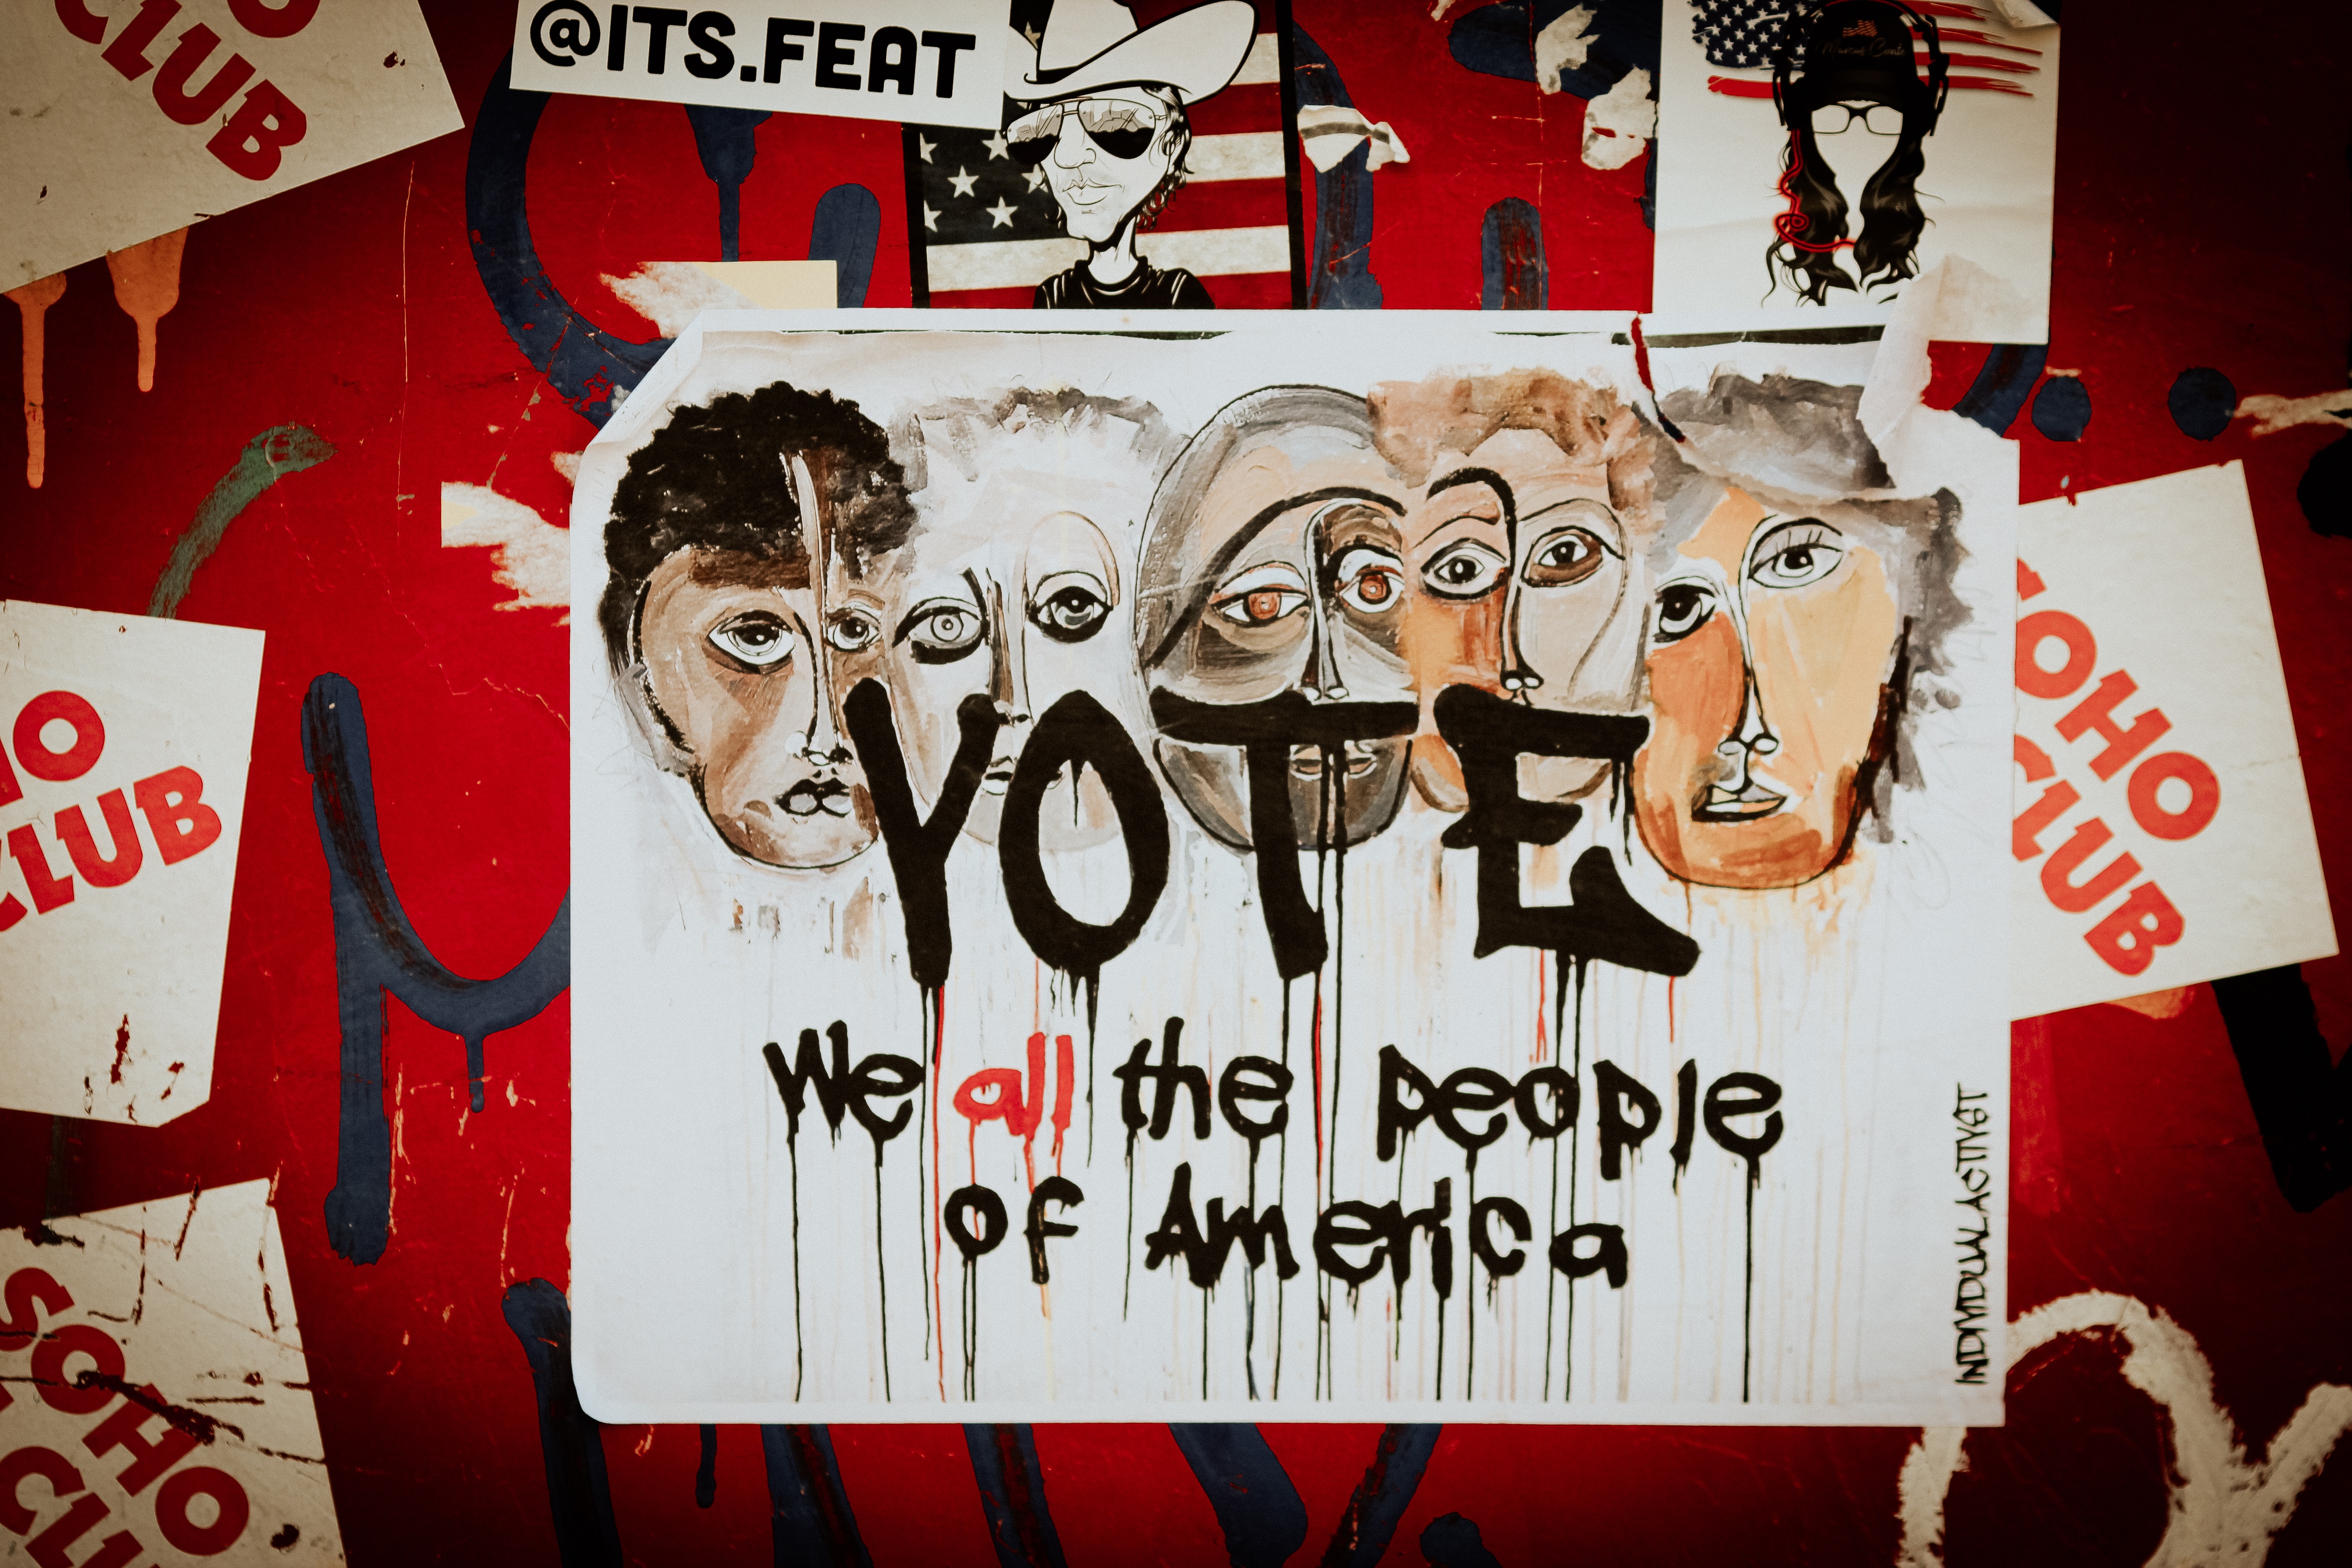 CLUB
@ITS.FEAT
VOTE
We all the people
of America
INDIVIDUALACTIVIST
HO
CLUB
SOHO
CLUB
SOHO